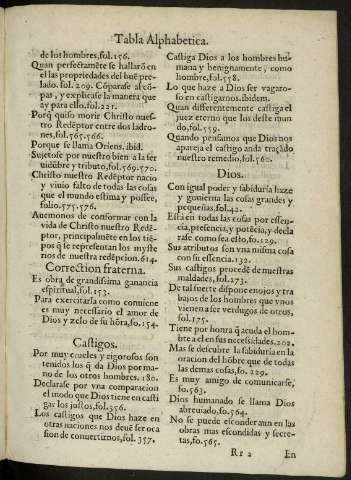 Tabla Alphabetica.
de los hombres, fol. 156.
Quan perfectamẽte se hallarõ en
el las propriedades del buẽ pre-
lado. fol. 209. Cõparase al cõ-
pas, y explicase la manera que
ay para ello. fol. 221.
Porq̃ quiso morir Christo nues-
tro Redẽptor entre dos ladro-
nes, fol. 565. 566.
Porque se llama Oriens. ibid.
Sujetose por nuestro bien a la ser
uidũbre y tributo, fol. 569. 570.
Christo nuestro Redẽptor nacio
y viuio falto de todas las cosas
que el mundo estima y possee,
folio. 575. 576.
Auemonos de conformar con la
vida de Christo nuestro Redẽ-
ptor, principalmẽte en los tiẽ-
pos q̃ se representan los myste
rios de nuestra redẽpcion. 614.
Correction fraterna.
Es obra de grandissima ganancia
espiritual, fol. 153.
Para exercitarla como conuiene
es muy necessario el amor de
Dios y zelo de su hõra, fo. 154.
Castigos.
Por muy crueles y rigorosos son
tenidos los q̃ da Dios por ma-
no de los otros hombres. 180.
Declarase por vna comparacion
el modo que Dios tiene en casti
gar los justos, fol. 356.
Los castigos que Dios haze en
otras naciones nos deuẽ ser oca
sion de conuertirnos, fol. 357.
Castiga Dios a los hombres hu-
mana y benignamente, como
hombre, fol. 558.
Lo que haze a Dios ser vagaro-
so en castigarnos. ibidem.
Quan differentemente castiga el
juez eterno que los deste mun
do, fol. 559.
Quando pensamos que Dios nos
apareja el castigo anda traçado
nuestro remedio, fol. 560.
Dios.
Con igual poder y sabiduria haze
y gouierna las cosas grandes y
pequeñas, fol. 42.
Està en todas las cosas por essen-
cia, presencia, y potẽcia, y decla
rase como sea esto, fo. 129.
Sus atributos son vna misma cosa
con su essencia. 132.
Sus castigos procedẽ de nuestras
maldades, fol. 273.
De tal suerte dispone enojos y tra
bajos de los hombres que vnos
vienen a ser verdugos de otros,
fol. 175.
Tiene por honra q̃ acuda el hom-
bre a el en sus necessidades. 202.
Mas se descubre la sabiduria en la
oracion del hõbre que de todas
las demas cosas, fo. 229.
Es muy amigo de comunicarse,
fo. 563.
Dios humanado se llama Dios
abreuado, fo. 564.
No se puede esconder aun en las
obras mas escondidas y secre-
tas, fo. 565.
Rr 2 En